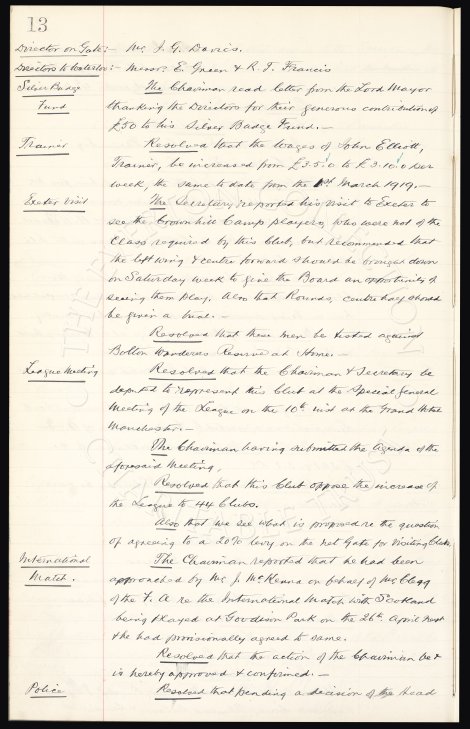 13
Director on Gate:- Mr. J. G. Davies.
Directors to Waterloo:- Messrs. E. Green & R. T. Francis
Silver Badge The Chairman read letter from the Lord Mayor
Fund thanking the Directors for their generous contribution of
£50 to his Silver Badge Fund.-
Trainer Resolved that the wages of John Elliott,
Trainer, be increased from £3.5.0 to £3.10.0 per
week, the same to date from the 1st March 1919.-
Exeter Visit The Secretary reported his visit to Exeter to
see the Crownhill Camp players, who were not of the
Class required by this Club, but recommended that
the left wing & centre forward should be brought down
on Saturday week to give the Board an opportunity of
seeing them play. Also that Rounds, centre half should
be given a trial.-
Resolved that these men be tested against
Bolton Wanderers Reserve at Home.-
League Meeting Resolved that the Chairman & Secretary be
deputed to represent this Club at the Special General
Meeting of the League on the 10th inst at the Grand Hotel
Manchester.-
The Chairman having submitted the Agenda of the
aforesaid Meeting,
Resolved that this Club oppose the increase of
the League to 44 Clubs.
Also that we see what is proposed re the question
of agreeing to a 20% levy on the net Gate for Visiting Clubs.
International The Chairman reported that he had been
Match. approached by Mr. J. McKenna on behalf of Mr. Clegg
of the F. A. re the International Match with Scotland
being played at Goodison Park on the 26th April next
& he had provisionally agreed to same.
Resolved that the action of the Chairman be &
is hereby approved & confirmed.-
Police Resolved that pending a decision of the Head